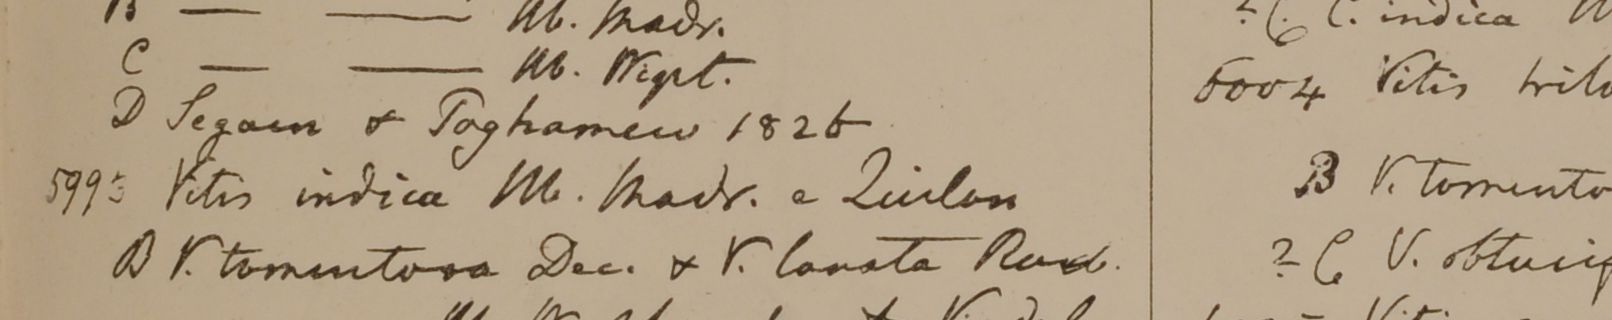 B — — Hb. Madr.
C — — Hb. Wight.
D Segaen & Toghamew 1826
5993 Vitis indica Hb. Madr. e Quilon
B V. tomentosa Dec. & V. lanata Roxb.
? C. C. indica
6004 Vitis trilo
B V. tomento
? C V. obtusif